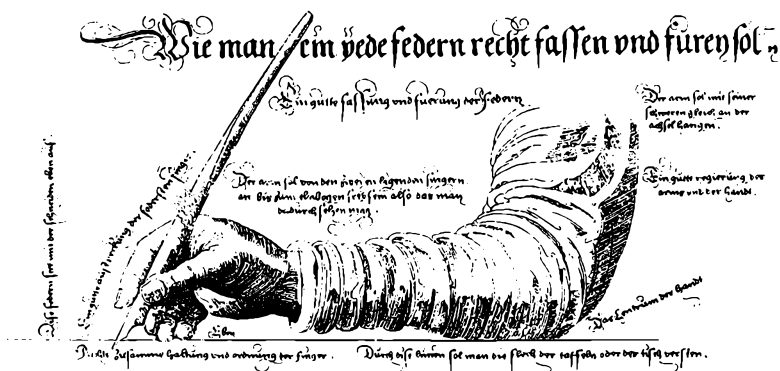 Wie man ein yede federn recht fassen vnd füren sol
Ein gutte fassung vnd fuerung der federn
Der arm sol mit seiner
schweren gleich an der
achsel hangen.
Der arm sol von den zweyen ligenden fingern
an bis zum elnbogen sein also das man
dardurch sehen mag.
Ein gutte regierung der
arms vnd der handt.
Dise federn stet mit der schneiden eben auf
Ein gutte auf der federn
Das Centrum der handt
Eben
zusamme haltung vnd ordnung der finger.
Durch dise linien sol man die flech der taffeln oder der tisch versten.